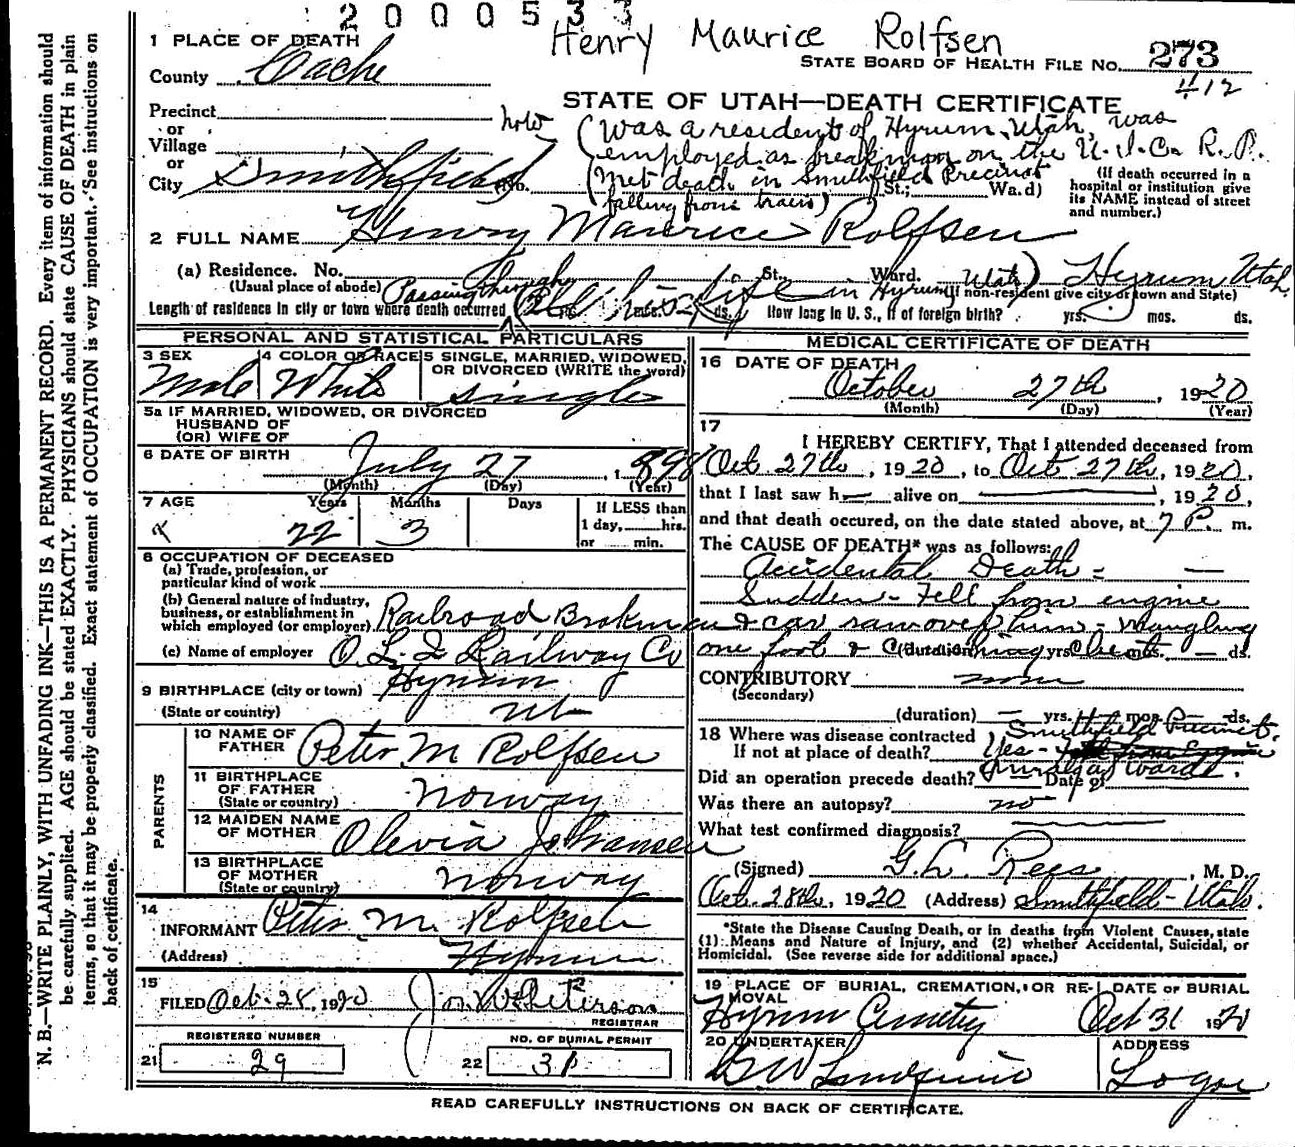 2000533
Henry Maurice Rolfsen
1 PLACE OF DEATH
STATE BOARD OF HEALTH FILE NO. 273
412
County Cache
STATE OF UTAH—DEATH CERTIFICATE
Precinct
or
Village
or
City Smithfield (No. St.; Ward)
note (was a resident of Hyrum, Utah, was
employed as breakman on the U.I.C. R.R.
(met death in Smithfield Precinct
falling from train)
(If death occurred in a
hospital or institution give
its NAME instead of street
and number.)
2 FULL NAME Henry Maurice Rolfsen
(a) Residence. No. St., Ward. Hyrum Utah
(Usual place of abode) Passing through (If non-resident give city or town and State)
(All his life in Hyrum, Utah)
Length of residence in city or town where death occurred yrs. mos. ds. How long in U. S., if of foreign birth? yrs. mos. ds.
PERSONAL AND STATISTICAL PARTICULARS
3 SEX Male
4 COLOR OR RACE White
5 SINGLE, MARRIED, WIDOWED,
OR DIVORCED (WRITE the word) single
5a IF MARRIED, WIDOWED, OR DIVORCED
HUSBAND OF
(OR) WIFE OF
6 DATE OF BIRTH July 27, 1898
(Month) (Day) (Year)
7 AGE Years Months Days If LESS than
1 day, hrs.
or min.
22 3
8 OCCUPATION OF DECEASED
(a) Trade, profession, or
particular kind of work
(b) General nature of industry,
business, or establishment in
which employed (or employer) Railroad Brakman
(c) Name of employer O.L.& I Railway Co
9 BIRTHPLACE (city or town) Hyrum
(State or country) Ut
PARENTS
10 NAME OF
FATHER Peter M Rolfsen
11 BIRTHPLACE
OF FATHER
(State or country) Norway
12 MAIDEN NAME
OF MOTHER Olevia Johansen
13 BIRTHPLACE
OF MOTHER
(State or country) Norway
14
INFORMANT Peter M. Rolfsen
(Address) Hyrum
15
FILED Oct. 28, 1920 Jos. W. Peterson
REGISTRAR
REGISTERED NUMBER
21 29
NO. OF BURIAL PERMIT
22 31
MEDICAL CERTIFICATE OF DEATH
16 DATE OF DEATH
October 27th, 1920
(Month) (Day) (Year)
17
I HEREBY CERTIFY, That I attended deceased from
Oct 27th, 1920, to Oct 27th, 1920,
that I last saw h— alive on ———, 1920,
and that death occured, on the date stated above, at 7 P. m.
The CAUSE OF DEATH* was as follows:
Accidental Death = —
Sudden - Fell from engine
& car ran over him - mangling
one foot & Crushing Chest
(duration) yrs. mos. — ds.
CONTRIBUTORY none
(Secondary)
(duration) — yrs. mos. ds.
18 Where was disease contracted Smithfield Precinct.
If not at place of death? Yes -
Did an operation precede death? Date of
Was there an autopsy? no
What test confirmed diagnosis?
(Signed) G.L. Rees, M. D.
Oct. 28th, 1920 (Address) Smithfield - Utah.
*State the Disease Causing Death, or in deaths from Violent Causes, state
(1) Means and Nature of Injury, and (2) whether Accidental, Suicidal, or
Homicidal. (See reverse side for additional space.)
19 PLACE OF BURIAL, CREMATION, OR RE-
MOVAL
Hyrum Cemetry
DATE OF BURIAL
Oct 31 1920
20 UNDERTAKER
ADDRESS
Logan
READ CAREFULLY INSTRUCTIONS ON BACK OF CERTIFICATE.
N. B.—WRITE PLAINLY, WITH UNFADING INK—THIS IS A PERMANENT RECORD. Every item of information should
be carefully supplied. AGE should be stated EXACTLY. PHYSICIANS should state CAUSE OF DEATH in plain
terms, so that it may be properly classified. Exact statement of OCCUPATION is very important. See instructions on
back of certificate.